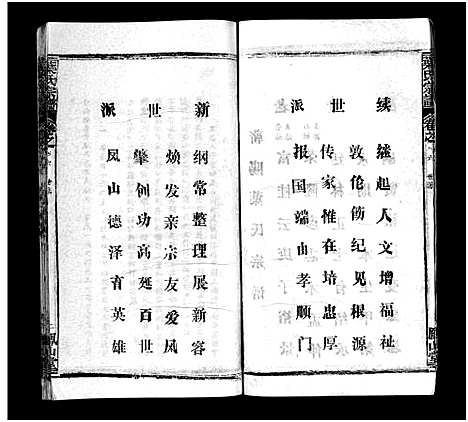 续世派
继起人文增福祉
敦伦饬纪见根源
传家惟在培忠厚
报国端由孝顺门
新世派
纲常整理展新容
焕发亲宗友爱风
肇创功高延百世
凤山德泽育英雄